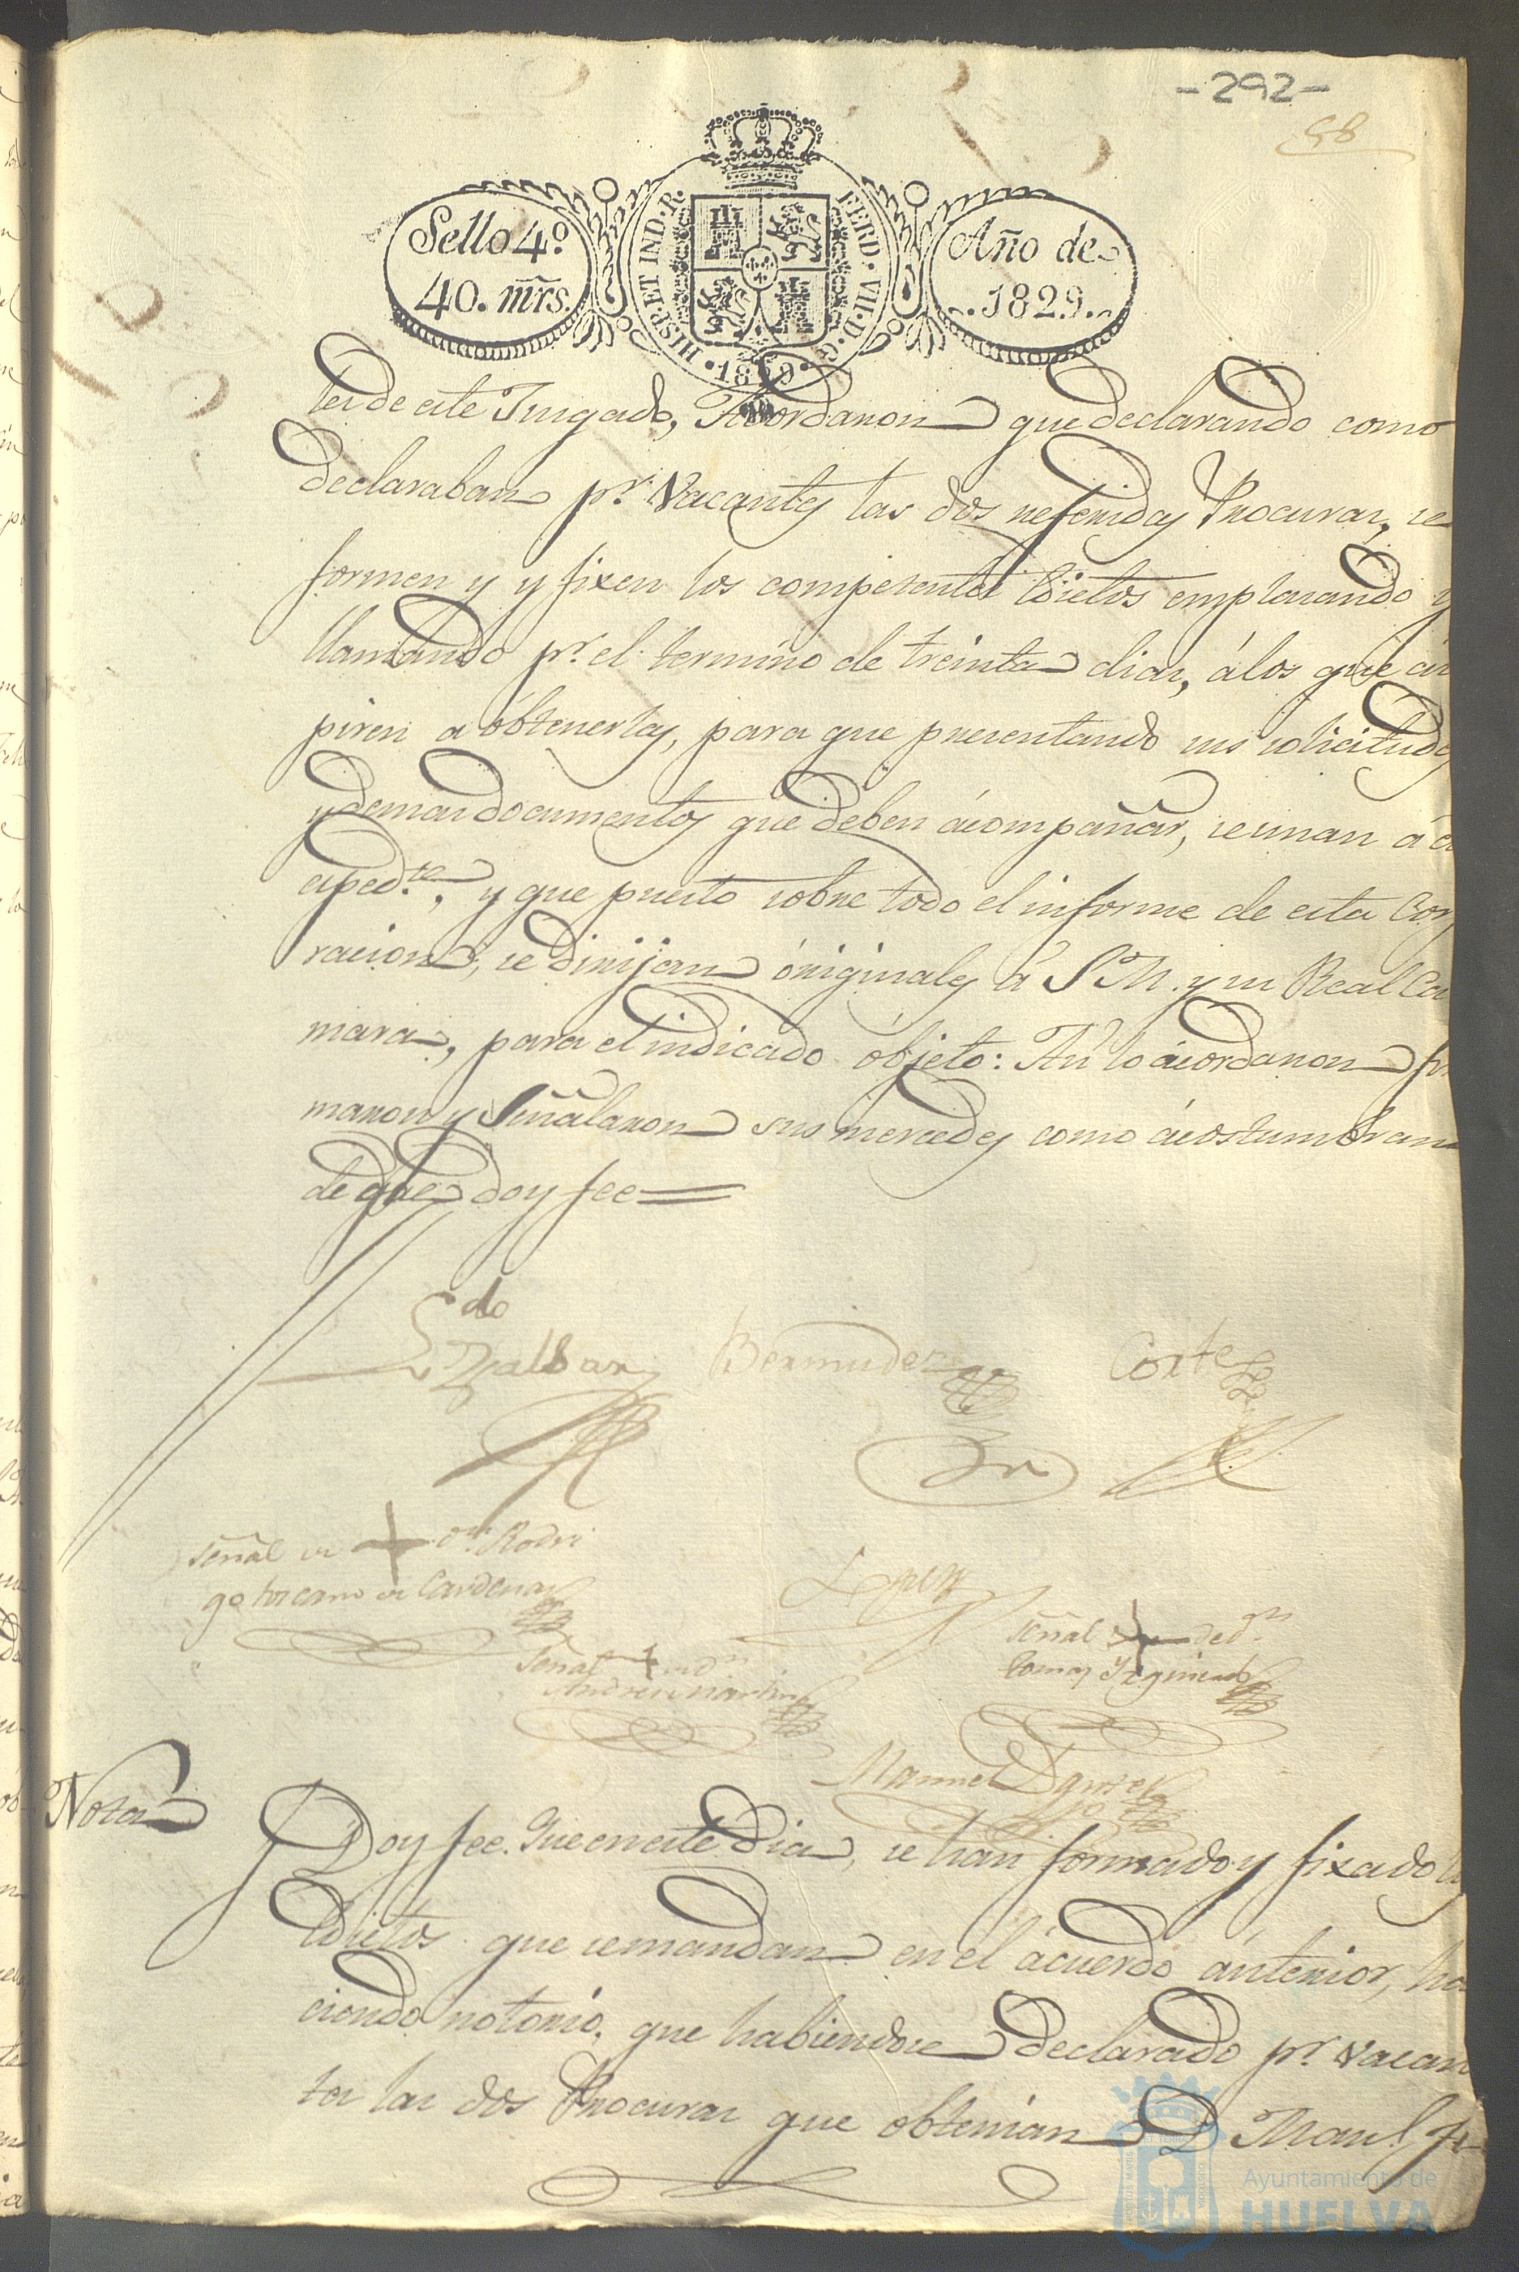 -292-
58
Sello 4º
40. mrs.
HISP. ET IND. R.
FERD. VII. D. G.
1829
Año de
1829.
tes de este Jusgado, Acordaron que declarando como
declaraban pr. vacantes las dos referidas Procuras, se
formen y y fixen los competentes Edictos emplasando y
llamando pr. el termino de treinta dias, á los que as
piren a obtenerlas, para que presentando sus solicitudes
y demas documentos que deben ácompañar, se unan á es
exped.te, y que puesto sobre todo el informe de esta Corpo
racion, se dirijan óriginales á S. M. y su Real Ca
mara, para el indicado óbjeto: Asi lo ácordaron fir
maron y Señalaron sus mercedes como ácostumbran
de que doy fee
Ldo
Zalbar
Bermudez
Corte
Señal de + Dn. Rodri
go toscano de Cardenas
Lopez
Señal + de Dn
Andres martin
Señal + de Dn
tomas Yzquierdo
Manuel
Nota
Doy fee: Que en este dia, se han formado y fixado los
Edictos que se mandan en el ácuerdo ánterior, ha
ciendo notorio, que habiendose declarado pr. vacan
tes las dos Procuras que obtenian D. Manl.
Ayuntamiento de
HUELVA